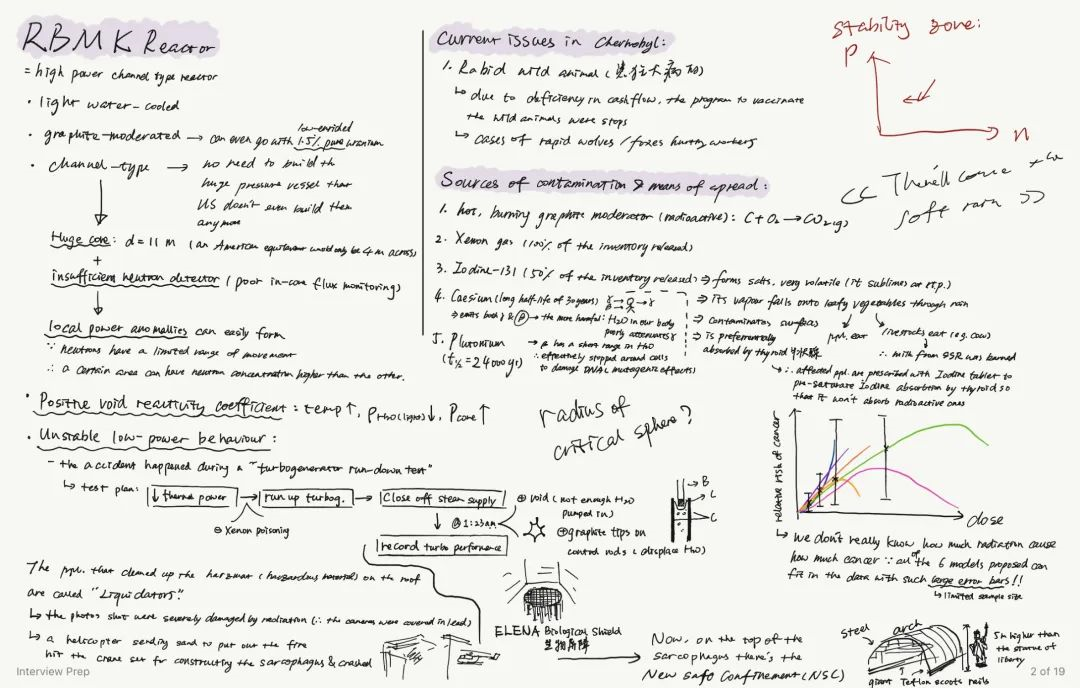 RBMK Reactor
= high power channel type reactor
· light water-cooled
· graphite-moderated → can even go with 1.5% pure uranium
low-enriched
· channel-type → no need to build th
huge pressure vessel that
US don't even build them
anymore
Huge core: d = 11 m (an American equilavent would only be 4 m across)
+
insufficient neutron detector (poor in-core flux monitoring)
local power anomalies can easily form
∵ neutrons have a limited range of movement
∴ a certain area can have neutron concentration higher than the other.
· Positive void reactivity coefficient: temp↑, ρH₂O(light)↓, Pcore↑
· Unstable low-power behaviour:
- the accident happened during a "turbogenerator run-down test"
↳ test plan: ↓ thermal power → run up turbog. → Close off steam supply
⊖ Xenon poisoning
↓ @ 1:23am
record turbo performance
⊕ void (not enough H₂O
pumped in)
⊕ graphite tips on
control rods (displace H₂O)
B
L
C
The ppl. that cleaned up the hazmat (hazardous material) on the roof
are called "Liquidators."
↳ the photos shot were severely damaged by radiation (∵ the cameras were covered in lead)
↳ a helicopter sending sand to put out the fire
hit the crane set for constructing the sarcophagus & crashed
ELENA Biological Shield
生物屏障
Now, on the top of the
sarcophagus there's the
New Safe Confinement (NSC)
Current issues in Chernobyl:
1. Rabid wild animal (患狂犬病的)
↳ due to deficiency in cashflow, the program to vaccinate
the wild animals were stops
↳ cases of rapid wolves / foxes hurting workers
Sources of contamination & means of spread:
1. hot, burning graphite moderator (radioactive): C + O₂ → CO₂(g)
2. Xenon gas (100% of the inventory released)
3. Iodine-131 (50% of the inventory released) ⇒ forms salts, very volatile (it sublimes at r.t.p.)
⇒ its vapour falls onto leafy vegetables through rain
⇒ contaminates surfaces
⇒ is preferentially
absorbed by thyroid 甲狀腺
ppl. eat
livestocks eat (e.g. cow)
∴ milk from SSR was burned
∴ affected ppl. are prescribed with Iodine tablet to
pre-saturate Iodine absorption by thyroid so
that it won't absorb radioactive ones
4. Caesium (long half-life of 30 years)
⇒ emits both γ & β → the more harmful: H₂O in our body
poorly attenuates γ
β has a short range in H₂O
∴ effectively stopped around cells
to damage DNA (mutagenic effects)
5. Plutonium
(t½ = 24000 yr)
radius of
critical sphere?
stability zone:
P
n
<< There'll come
soft rain >>
relative risk of cancer
dose
↳ we don't really know how much radiation cause
how much cancer ∵ all of the 6 models proposed can
fit in the data with such large error bars!!
↳ limited sample size
steel arch
giant Teflon scoots rails
5m higher than
the statue of
liberty
Interview Prep
2 of 19